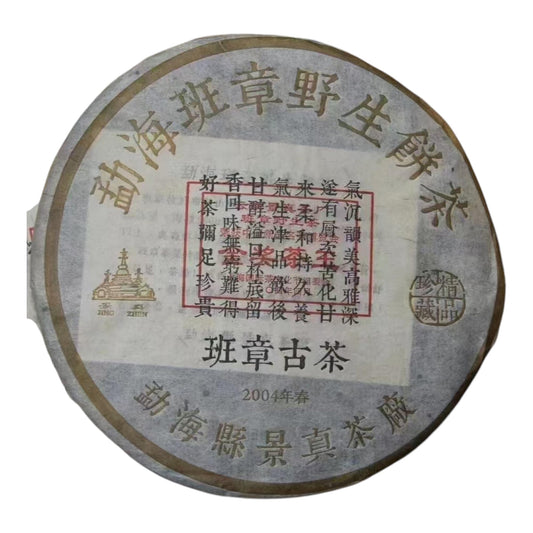 勐海班章野生餅茶
氣沉韻美高雅深
有苦化甘
來柔和特養
氣生津品飲後
甘醇溢口杯底留
香回味無窮難得
好茶彌足珍貴
茶王
景真
JING ZHEN
精品
珍藏
班章古茶
2004年春
勐海縣景真茶廠